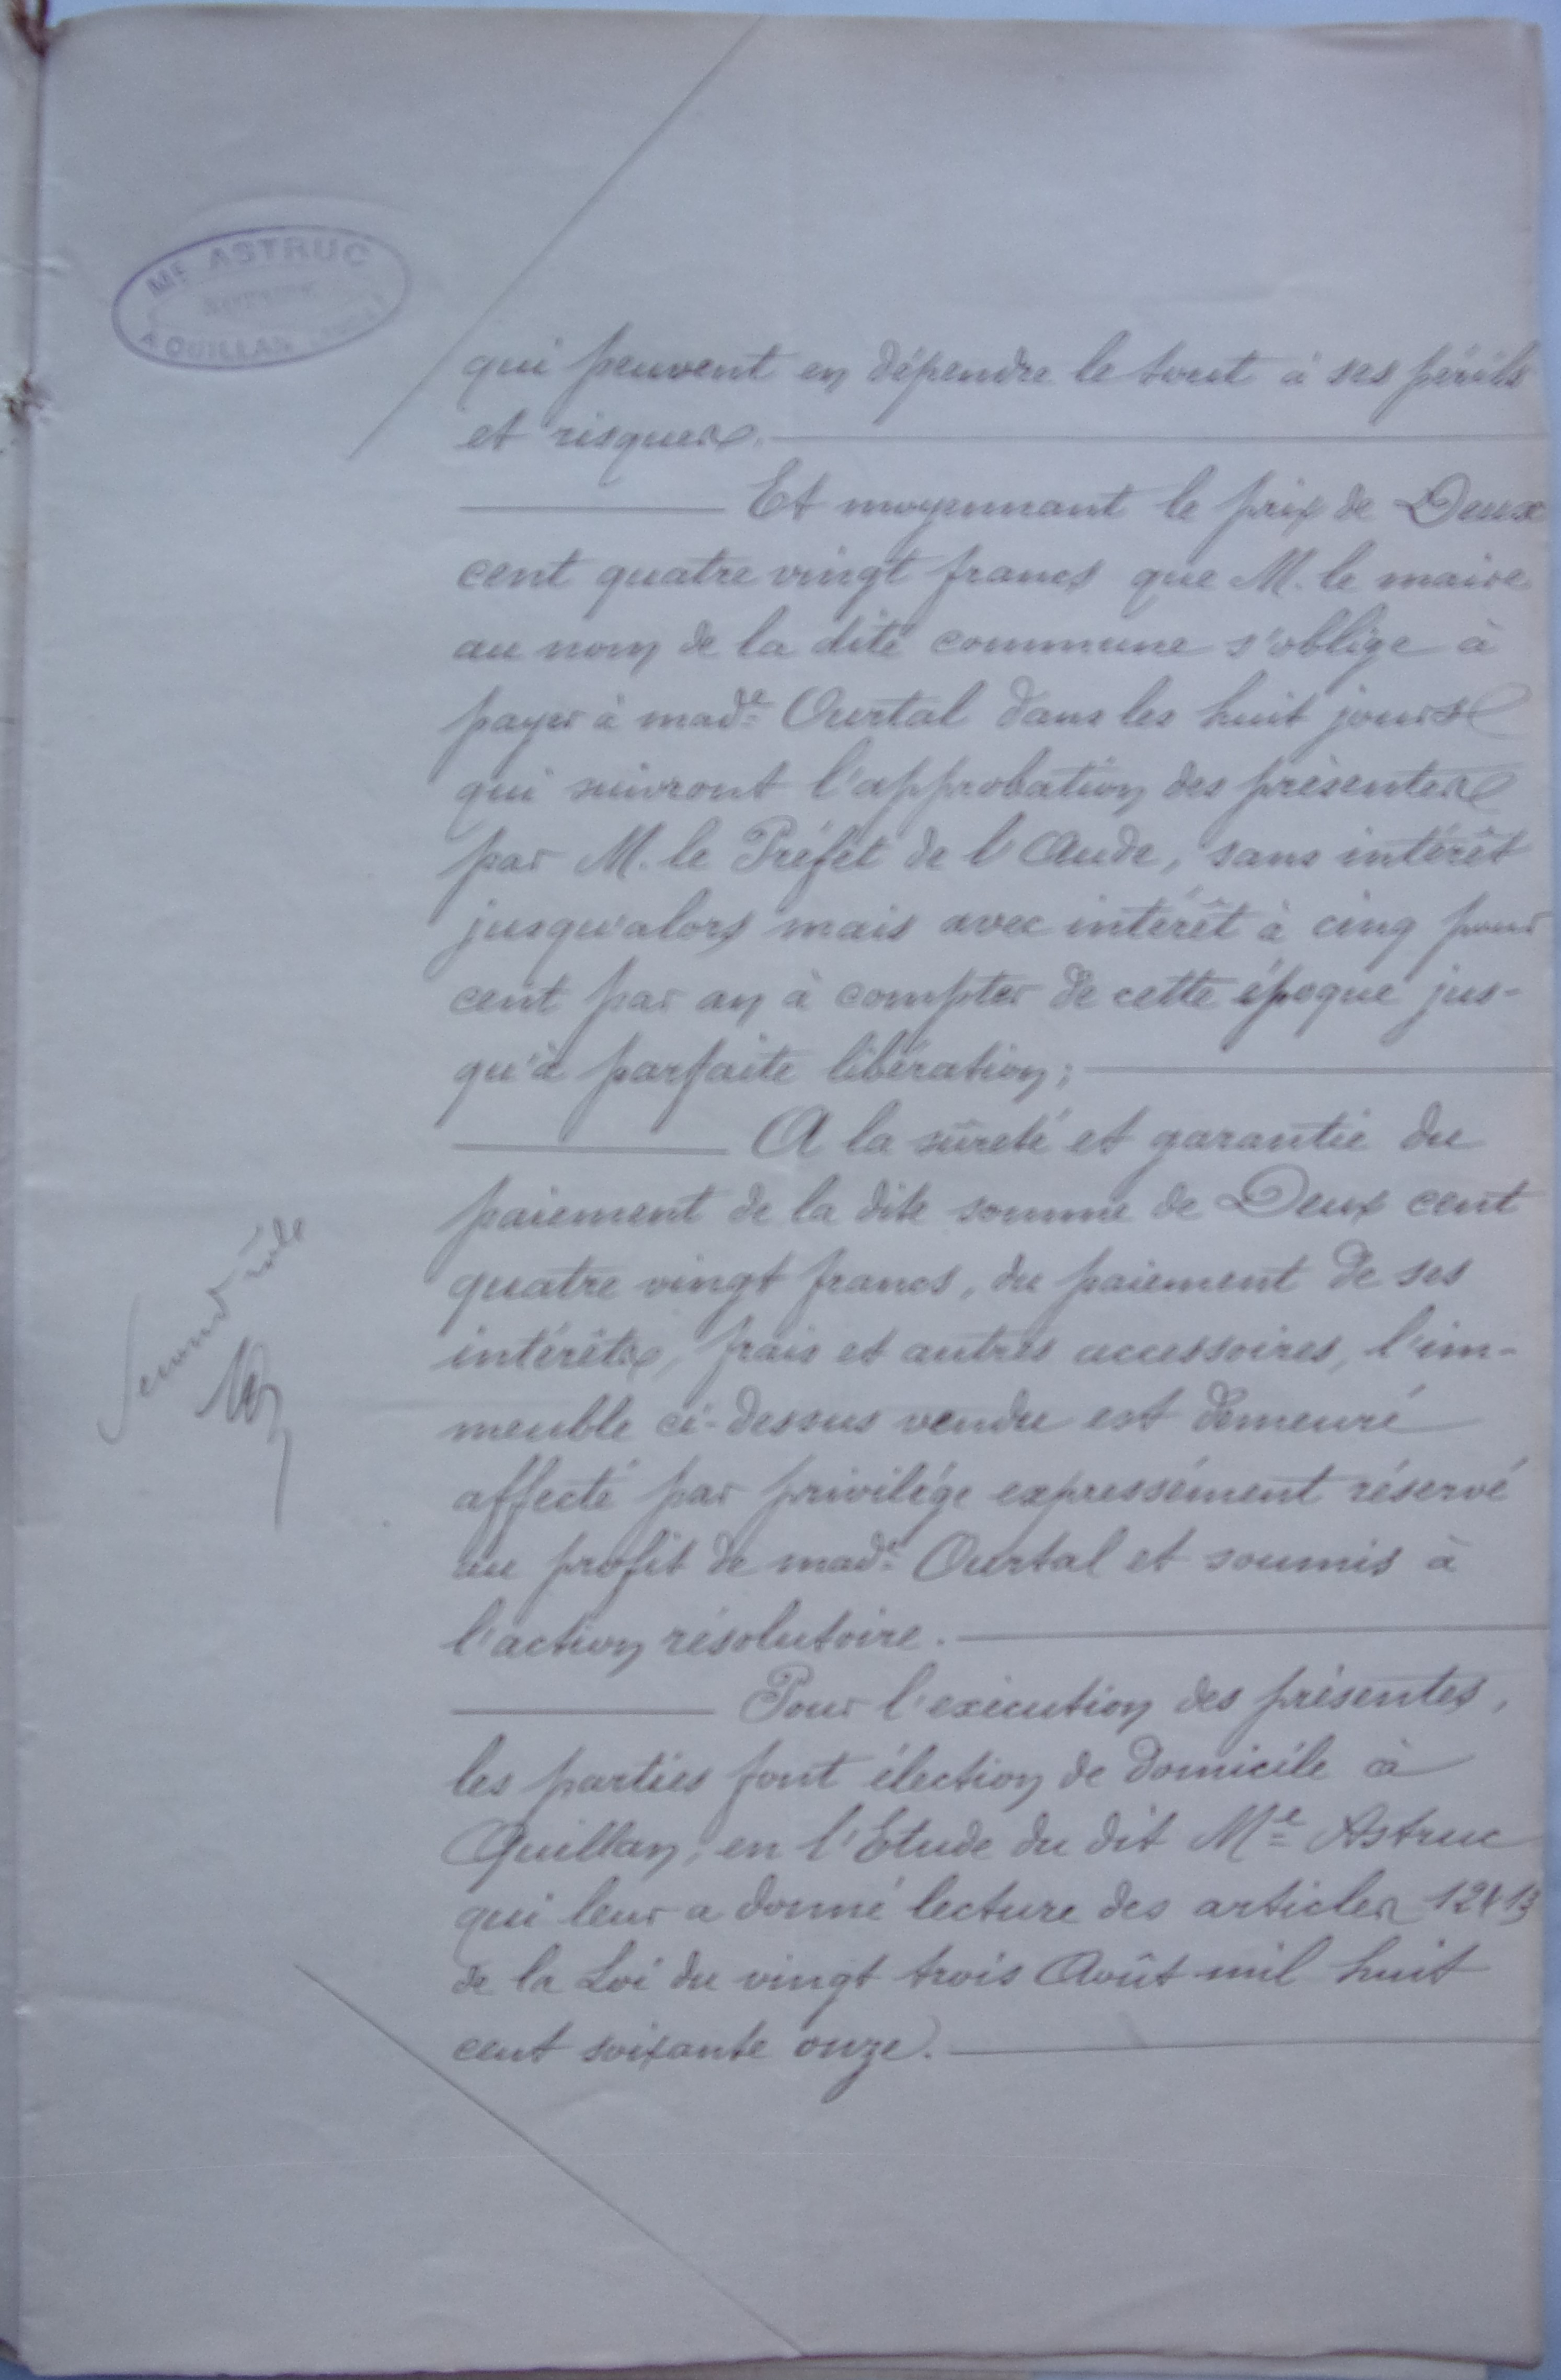 Me ASTRUC
NOTAIRE
A QUILLAN
qui peuvent en dépendre le tout à ses périls
et risques.
Et moyennant le prix de Deux
cent quatre vingt francs que M. le maire
au nom de la dite commune s'oblige à
payer à made Ourtal dans les huit jours
qui suivront l'approbation des présentes
par M. le Préfet de l'Aude, sans intérêt
jusqu'alors mais avec intérêt à cinq pour
cent par an à compter de cette époque jus-
qu'à parfaite libération;
A la sûreté et garantie du
paiement de la dite somme de Deux cent
quatre vingt francs, du paiement de ses
intérêts, frais et autres accessoires, l'im-
meuble ci-dessus vendu est demeuré
affecté par privilége expressément réservé
au profit de made Ourtal et soumis à
l'action résolutoire.
Pour l'exécution des présentes,
les parties font élection de domicile à
Quillan, en l'Etude du dit Me Astruc
qui leur a donné lecture des articles 12 & 13
de la Loi du vingt trois Août mil huit
cent soixante onze.
Second rôle